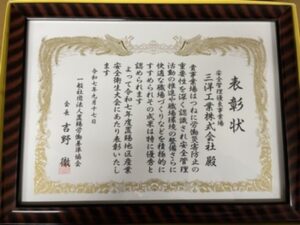 表彰状
安全管理優良事業場
三洋工業株式会社 殿
貴事業場はつねに労働災害防止の
重要性を深く認識され安全管理
活動の推進や職場環境の整備さらに
快適な職場づくりなどを積極的に
すすめられその成果は特に優秀と
認められます
よって令和七年度置賜地区産業
安全衛生大会にあたり表彰いたし
ます
令和七年九月十七日
一般社団法人置賜労働基準協会
会長 吉野 徹